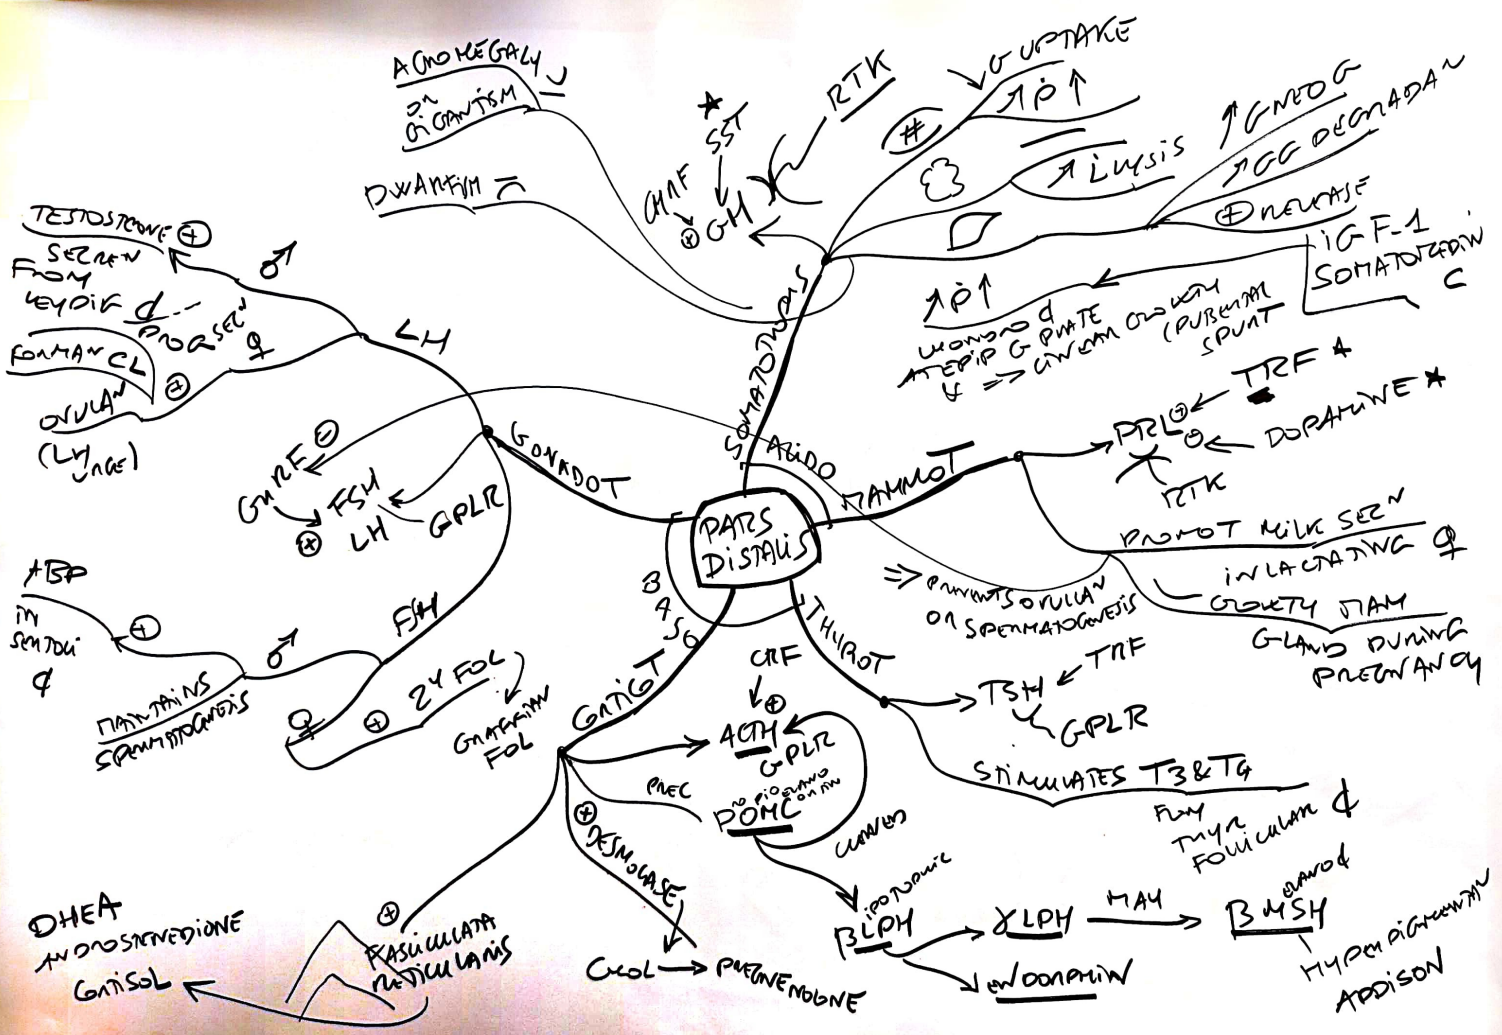 PARS
DISTALIS
SOMATOTROPHS
ACIDO
ACROMEGALY
OR
GIGANTISM
DWARFISM
GHRF
SST
⊕ GH
RTK
#
↓ G UPTAKE
↗ P ↑
↗ LYSIS
↗ GNEOG
↗ GG DEGRADAN
⊕ RELEASE
IGF-1
SOMATOMEDIN
C
↗ P ↑
AT EPIP G PLATE
=> LINEAR GROWTH
(PUBERTAL
SPURT
MAMMOT
PRL ⊕ ← TRF
⊖ ← DOPAMINE
RTK
PROMOT MILK SECRN
IN LACTATING ♀
GROWTH MAM
GLAND DURING
PREGNANCY
=> PREVENTS OVULAN
OR SPERMATOGENESIS
THYROT
TSH ← TRF
GPLR
STIMULATES T3 & T4
FROM
THYR
FOLLICULAR ₵
BASO
CORTICOT
CRF
ACTH ⊕
GPLR
PREC
POMC
CLEAVED
βLPH
LIPOTROPHIC
γLPH
MAY
βMSH
HYPERPIGMENTAN
ADDISON
ENDORPHIN
⊕ DESMOLASE
CHOL → PREGNENOLONE
⊕
FASCICULATA
RETICULARIS
DHEA
ANDROSTENEDIONE
CORTISOL
GONADOT
GNRF ⊖
⊕ FSH
LH
GPLR
LH
♂
TESTOSTERONE ⊕
SECREN
FROM
LEYDIG ₵
PROG SECRN
♀
FORMAN CL
⊕
OVULAN
(LH SURGE)
FSH
♂
⊕
ABP
IN
SERTOLI
₵
MAINTAINS
SPERMATOGNESIS
♀
⊕ 2Y FOL
GRAAFIAN
FOL